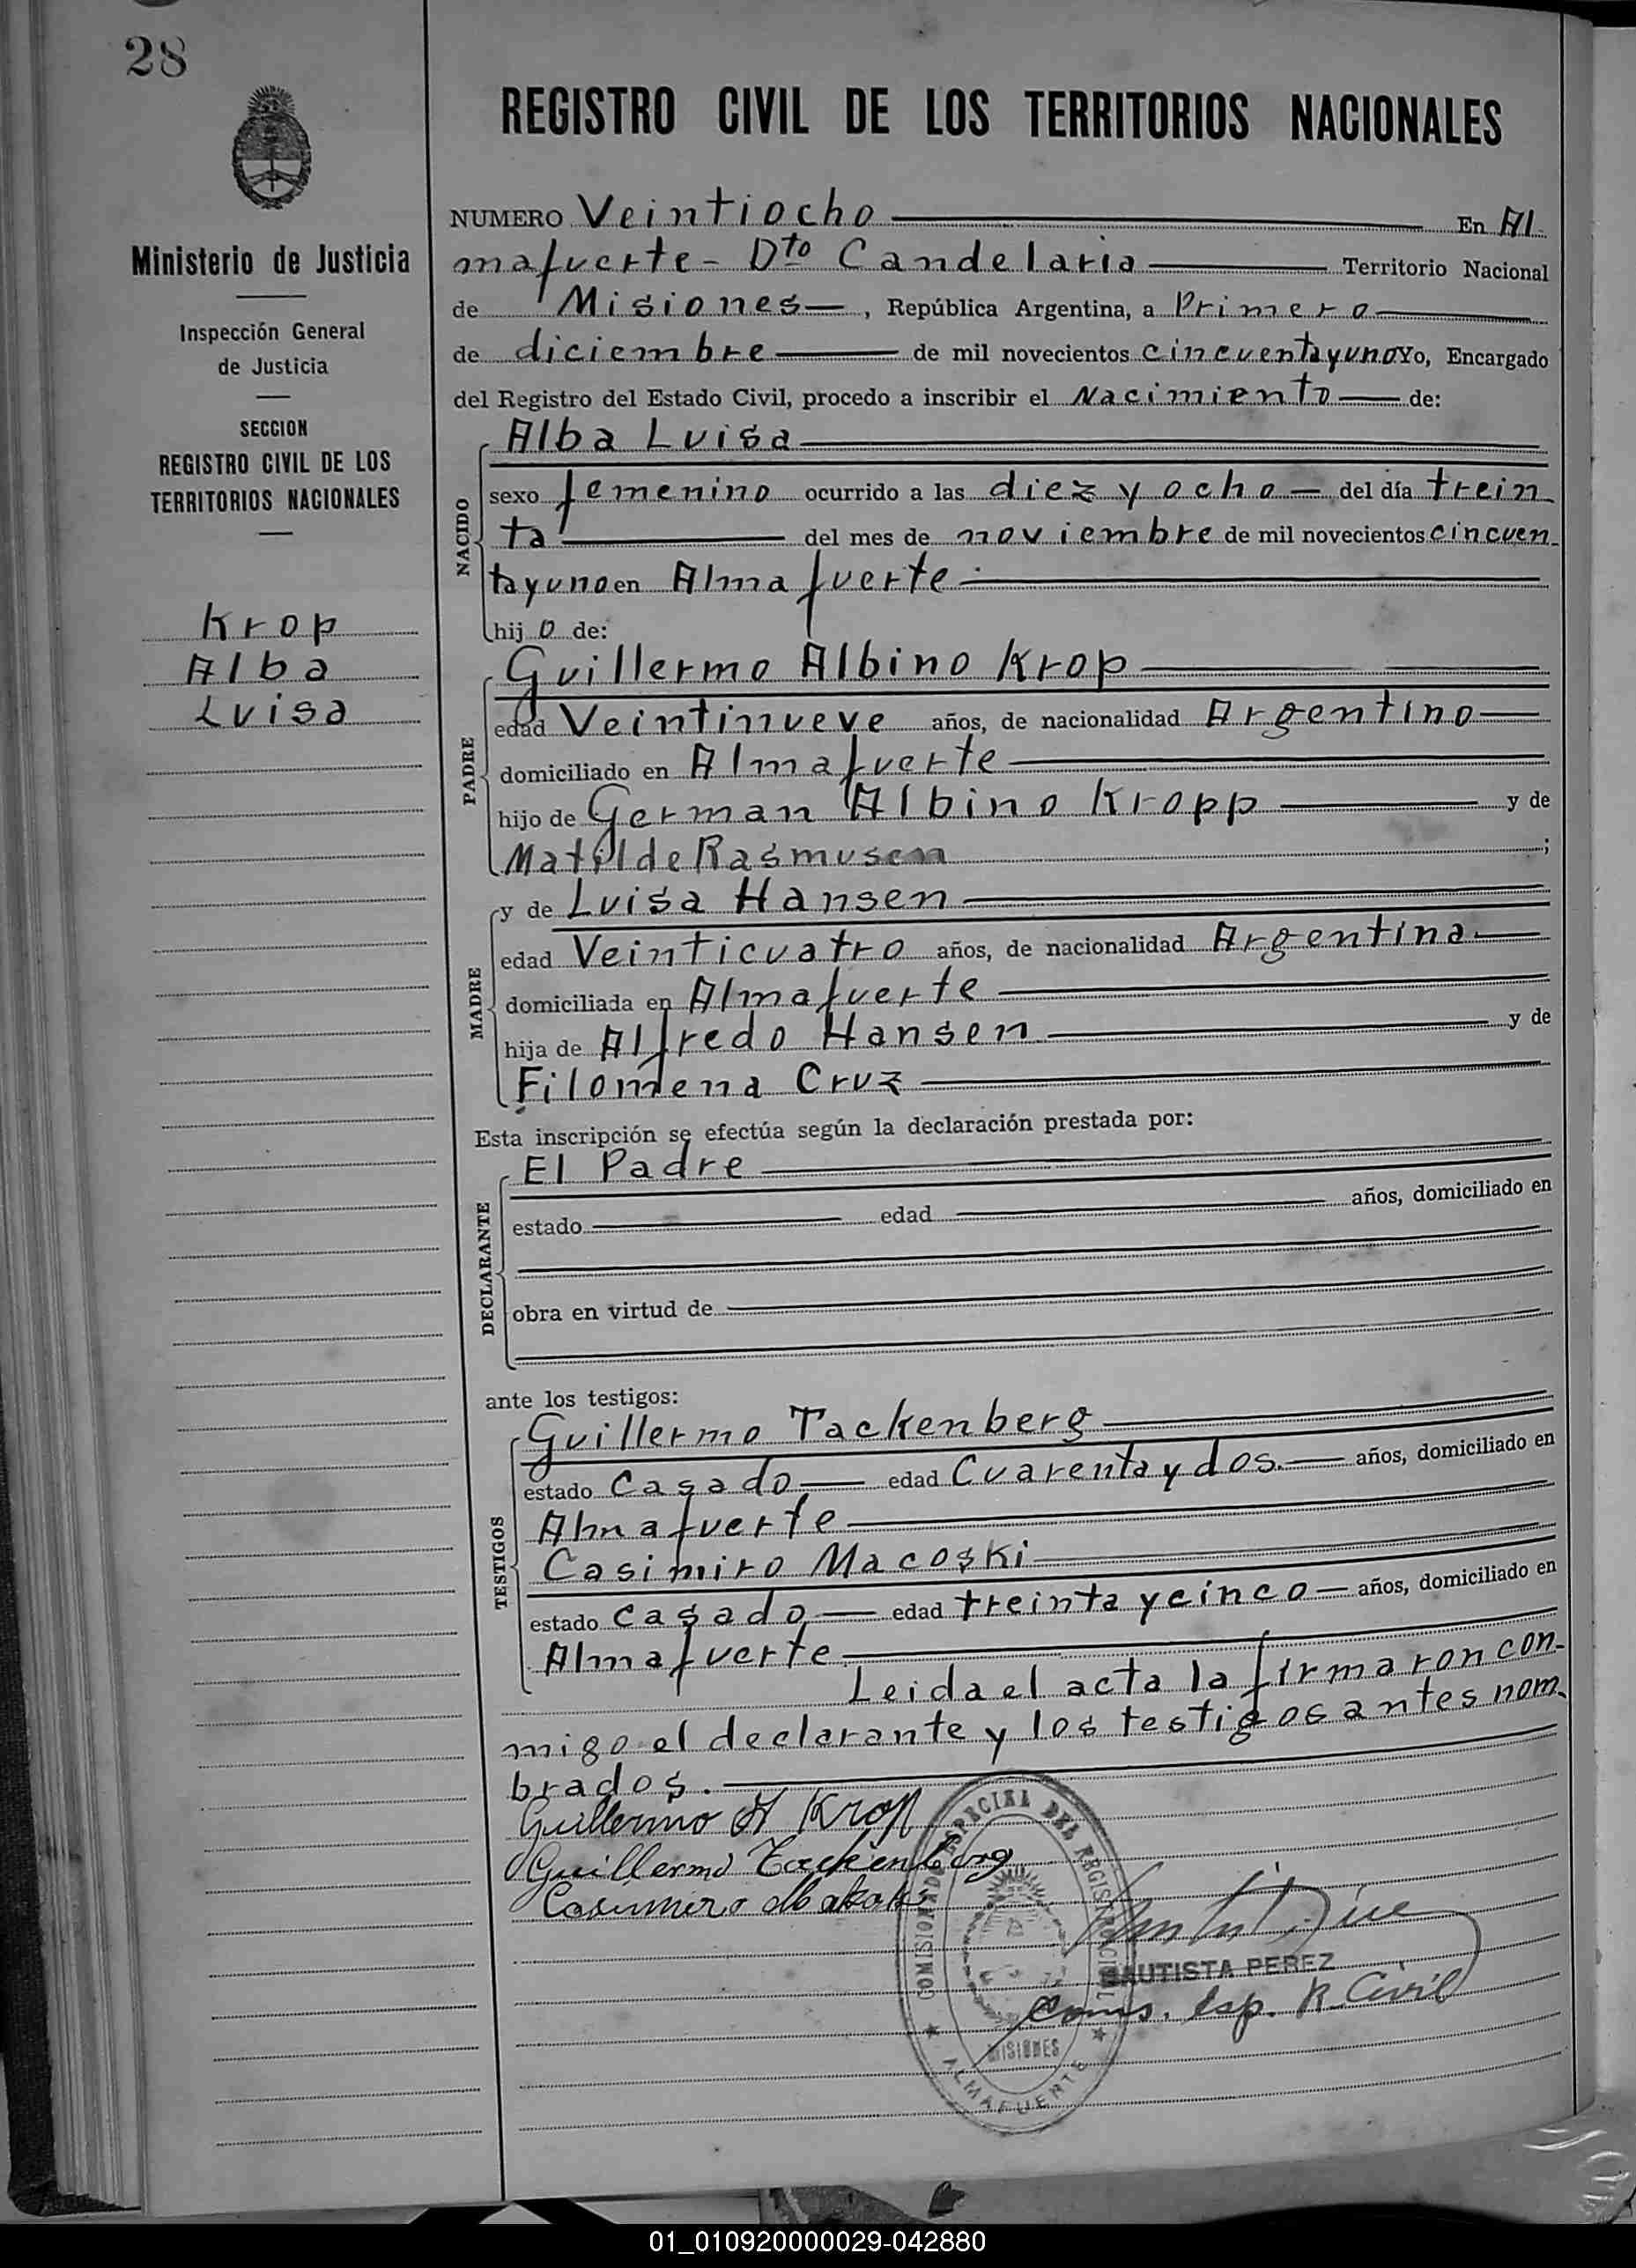 28
Ministerio de Justicia
Inspección General
de Justicia
SECCION
REGISTRO CIVIL DE LOS
TERRITORIOS NACIONALES
Krop
Alba
Luisa
REGISTRO CIVIL DE LOS TERRITORIOS NACIONALES
NUMERO Veintiocho En Al
mafuerte - Dto Candelaria Territorio Nacional
de Misiones, República Argentina, a Primero
de diciembre de mil novecientos cincuentayuno Yo, Encargado
del Registro del Estado Civil, procedo a inscribir el Nacimiento de:
NACIDO
Alba Luisa
sexo femenino ocurrido a las diez y ocho del día trein
ta del mes de noviembre de mil novecientos cincuen
tayuno en Almafuerte
hijo de:
PADRE
Guillermo Albino Krop
edad Veintinueve años, de nacionalidad Argentino
domiciliado en Almafuerte
hijo de German Albino Kropp y de
Matilde Rasmusen ;
MADRE
y de Luisa Hansen
edad Veinticuatro años, de nacionalidad Argentina
domiciliada en Almafuerte
hija de Alfredo Hansen y de
Filomena Cruz
Esta inscripción se efectúa según la declaración prestada por:
DECLARANTE
El Padre
estado edad años, domiciliado en
obra en virtud de
ante los testigos:
TESTIGOS
Guillermo Tackenberg
estado Casado edad Cuarenta y dos años, domiciliado en
Almafuerte
Casimiro Macoski
estado Casado edad treinta y cinco años, domiciliado en
Almafuerte
Leida el acta la firmaron con-
migo el declarante y los testigos antes nom-
brados.
Guillermo A Krop
Guillermo Tackenberg
Casimiro
COMISIONADO ESPECIAL DEL REGISTRO CIVIL
MISIONES
ALMAFUERTE
BAUTISTA PEREZ
Comis. Esp. R. Civil
01_010920000029-042880